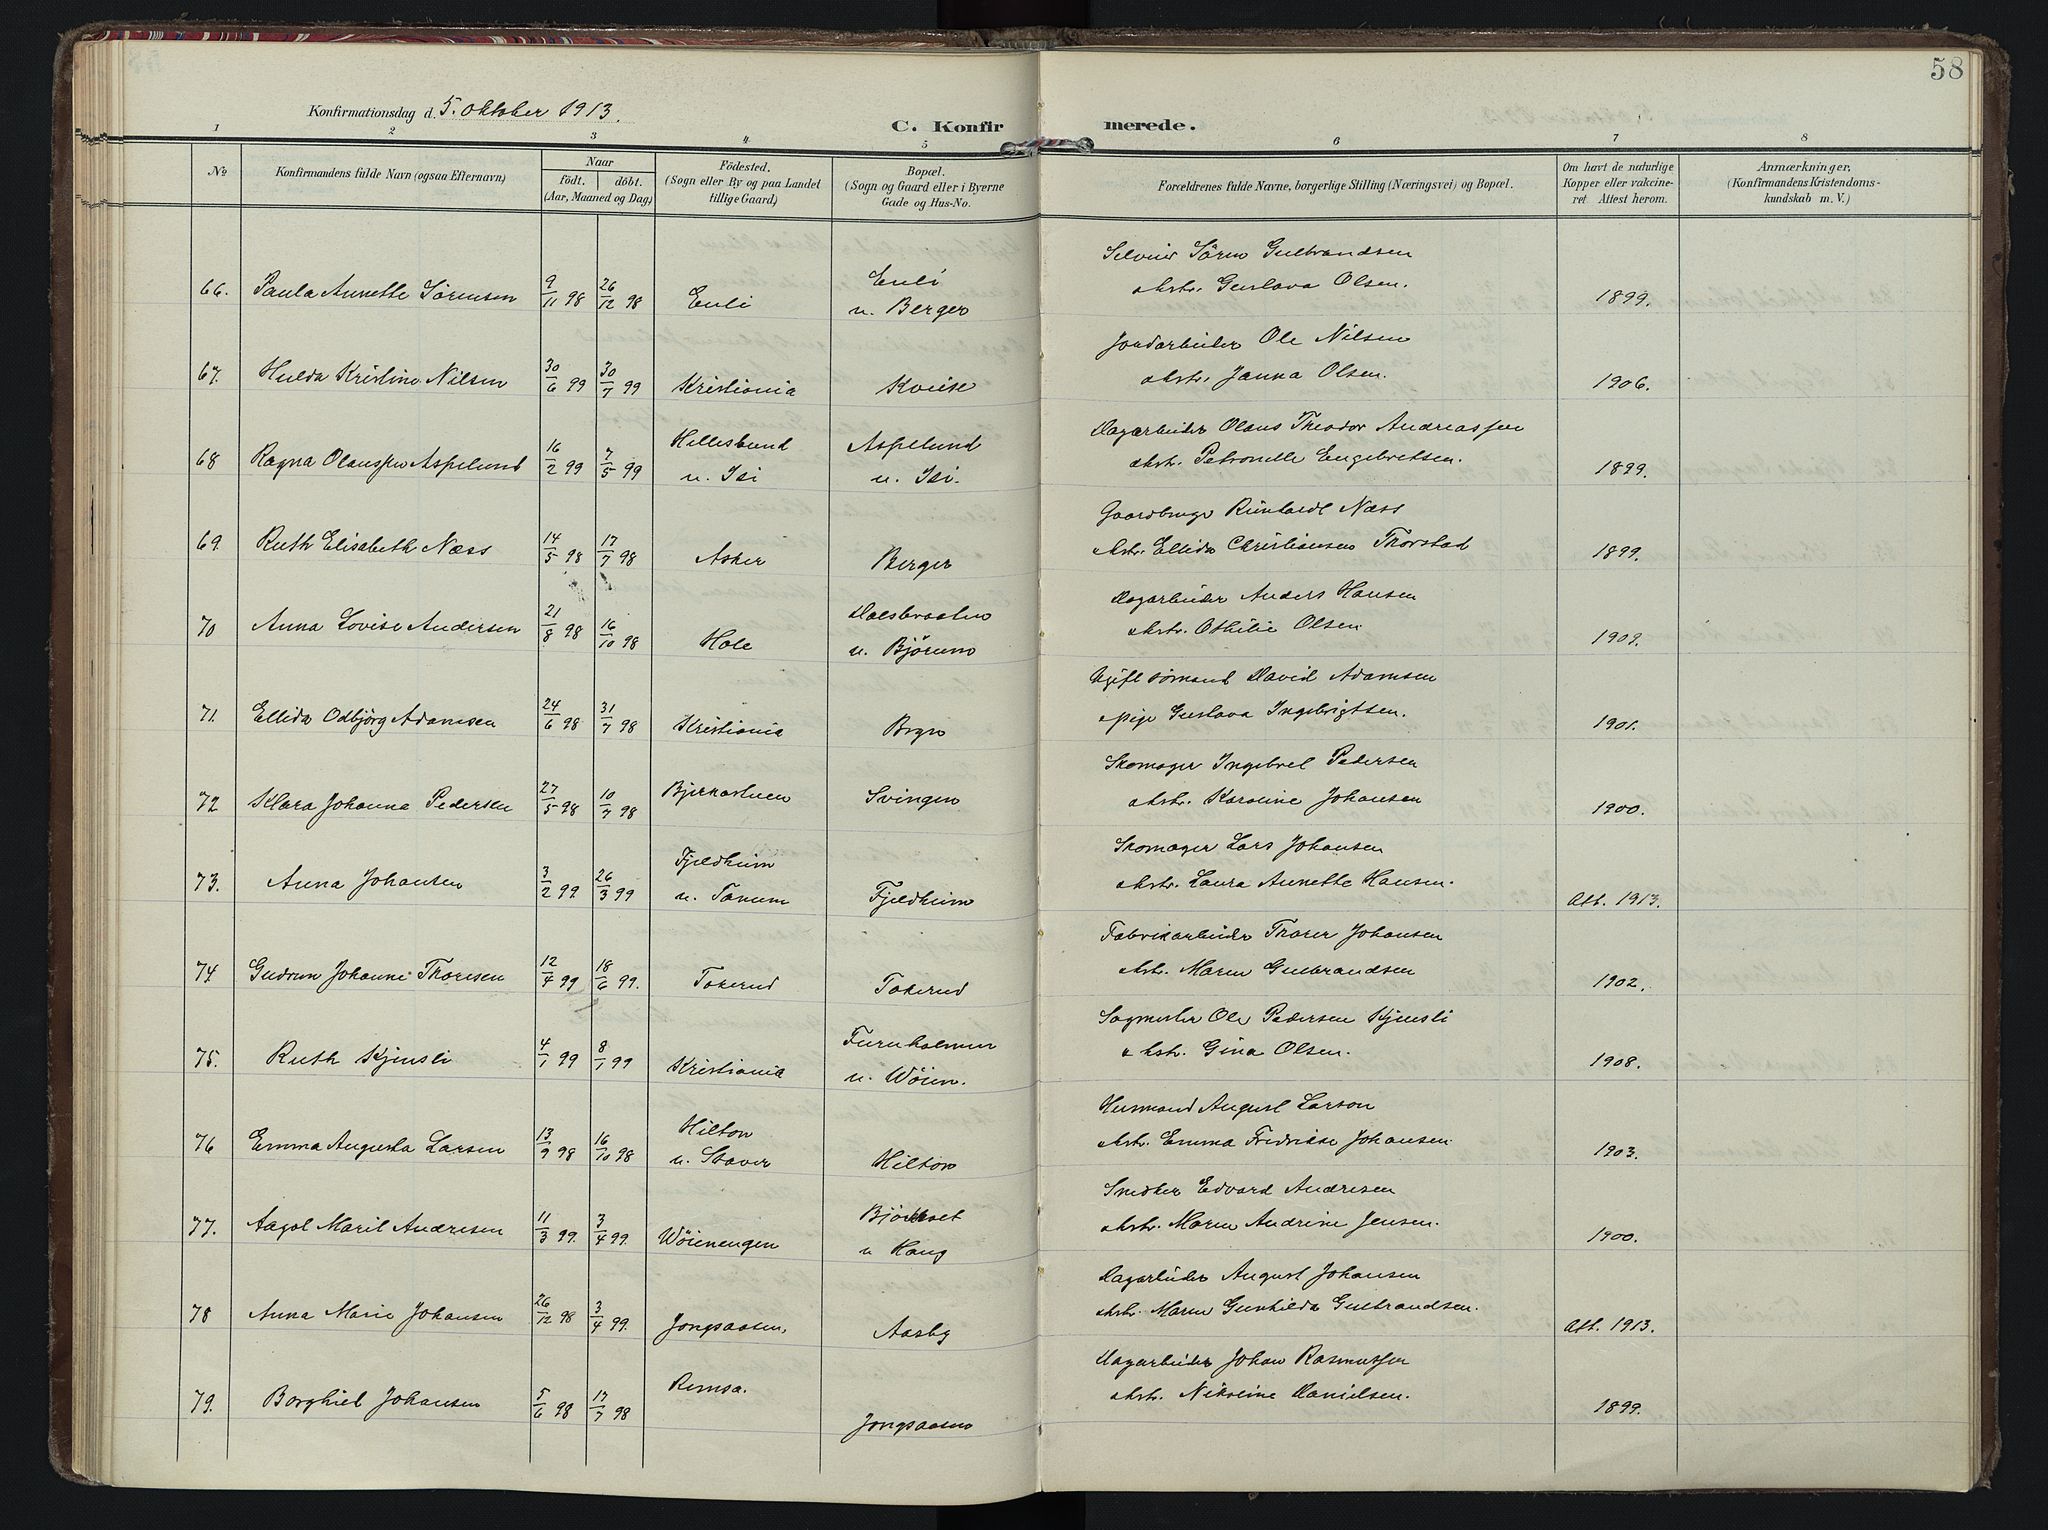 58
Konfirmationsdag d. 5. oktober 1913.
C. Konfirmerede.
1 2 3 4 5 6 7 8
No
Konfirmandens fulde Navn (ogsaa Efternavn)
Naar
födt. döbt.
(Aar, Maaned og Dag)
Födested.
(Sogn eller By og paa Landet
tillige Gaard)
Bopæl.
(Sogn og Gaard eller i Byerne
Gade og Hus-No.
Forældrenes fulde Navne, borgerlige Stilling (Næringsvei) og Bopæl.
Om havt de naturlige
Kopper eller vakcine-
ret Attest herom.
Anmærkninger,
(Konfirmandens Kristendoms-
kundskab m. V.)
66. Paula Annette Sörensen 9/11 98 26/12 98 Enli Enli
u. Berger
Selveier Sören Gulbrandsen
o hstr. Gustava Olsen. 1899.
67. Hulda Kristine Nilsen 30/6 99 30/7 99 Kristiania Kveise
Jordarbeider Ole Nilsen
o hstr. Janna Olsen. 1906.
68 Ragna Olaussen Aspelund 16/2 99 7/5 99 Hillesbund
u. Isi Aspelund
u. Isi.
Dagarbeider Olaus Theodor Andreassen
o hstr. Petronelle Engebretsen. 1899.
69. Ruth Elisabeth Næss 14/5 98 17/7 98 Asker Berger
Gaardbruger Reinhardt Næss
o hstr. Ellida Christiansen Thorstad 1899.
70 Anna Lovise Andersen 21/8 98 16/10 98 Hole Dælsbraaten
u. Björum
Dagarbeider Anders Hansen
o hstr. Othilie Olsen. 1909.
71. Ellida Odbjörg Adamsen 24/6 98 31/7 98 Kristiania Bryn
Ugift sömand David Adamsen
o pige Gustava Ingebrigtsen. 1901.
72 Klara Johanna Pedersen 27/5 98 10/7 98 Bjerkastuen Svingen
Skomager Ingebret Pedersen
o hstr. Karoline Johansen 1900.
73. Anna Johansen 3/2 99. 26/3 99 Fjeldheim
u. Tanum Fjeldheim
Skomager Lars Johansen
o hstr. Laura Annette Hansen. Att. 1913.
74. Gudrun Johanne Thoresen 12/4 99 18/6 99. Tokerud Tokerud
Fabrikarbeider Thorer Johansen
o hstr. Maren Gulbrandsen 1902.
75. Ruth Kjensli 4/1 99 8/1 99 Kristiania Furuholmen
u. Wöien.
Sagmester Ole Pedersen Kjensli
o hstr. Gina Olsen. 1908.
76 Emma Augusta Larsen 13/9 98 16/10 98 Hilton
u. Staver Hilton
Husmand August Larson
o hstr. Emma Fredrikke Johansen. 1903.
77. Aagot Marit Andresen 11/3 99. 3/4 99. Wöienengen
u Haug
Snedker Edvard Andresen
o hstr. Maren Andrine Jensen. 1900.
78 Anna Marie Johansen 26/12 98 3/4 99. Jongsaasen, Aasby
Dagarbeider August Johansen
o hstr. Maren Gunhilda Gulbrandsen. Att. 1913.
79. Borghild Johansen 5/6 98 17/7 98 Remsa. Jongsaasen
Dagarbeider Johan Rasmussen
o hstr. Nikoline Danielsen. 1899.